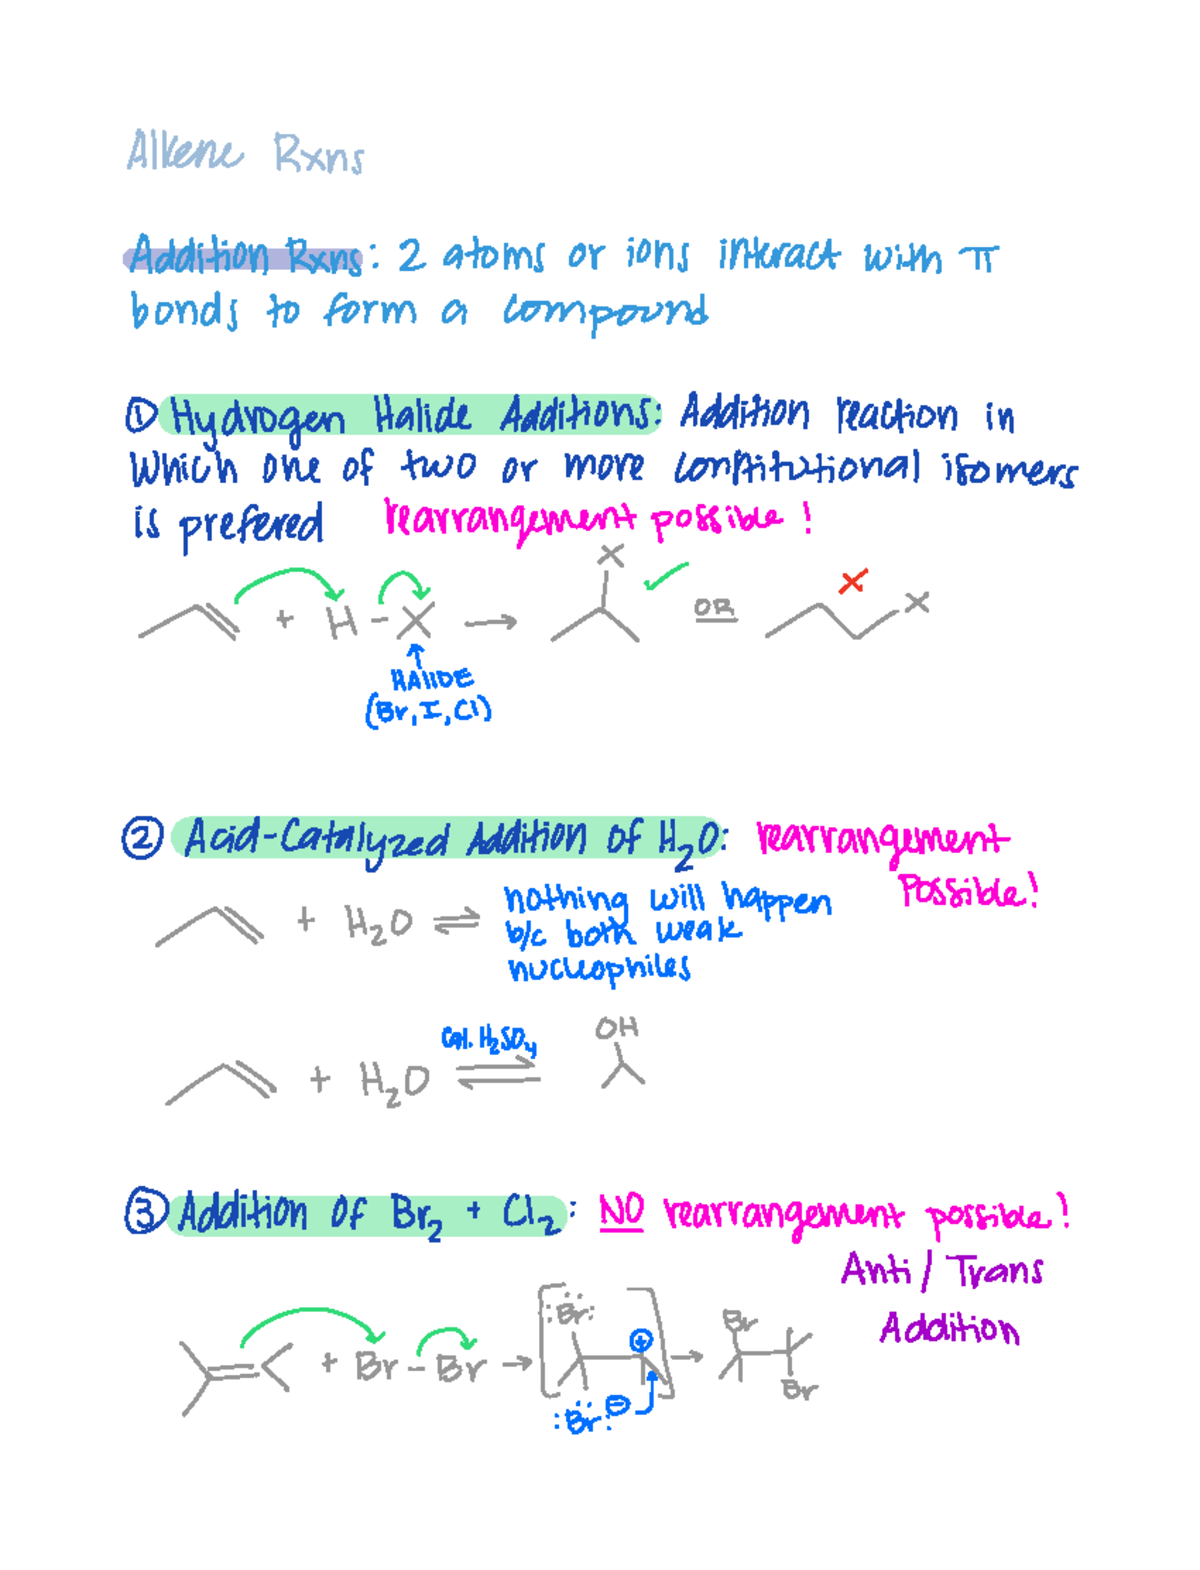 Alkene Rxns
Addition Rxns: 2 atoms or ions interact with π
bonds to form a compound
① Hydrogen Halide Additions: Addition reaction in
which one of two or more constitutional isomers
is prefered rearrangement possible!
X
+ H-X → OR X
HALIDE
(Br, I, Cl)
② Acid-Catalyzed Addition of H₂O: rearrangement
Possible!
+ H₂O ⇌ nothing will happen
b/c both weak
nucleophiles
cat. H₂SO₄
OH
+ H₂O ⇌
③ Addition of Br₂ + Cl₂: NO rearrangement possible!
Anti/Trans
Addition
:Br: ⊕ Br
+ Br-Br → →
Br
:Br: ⊖